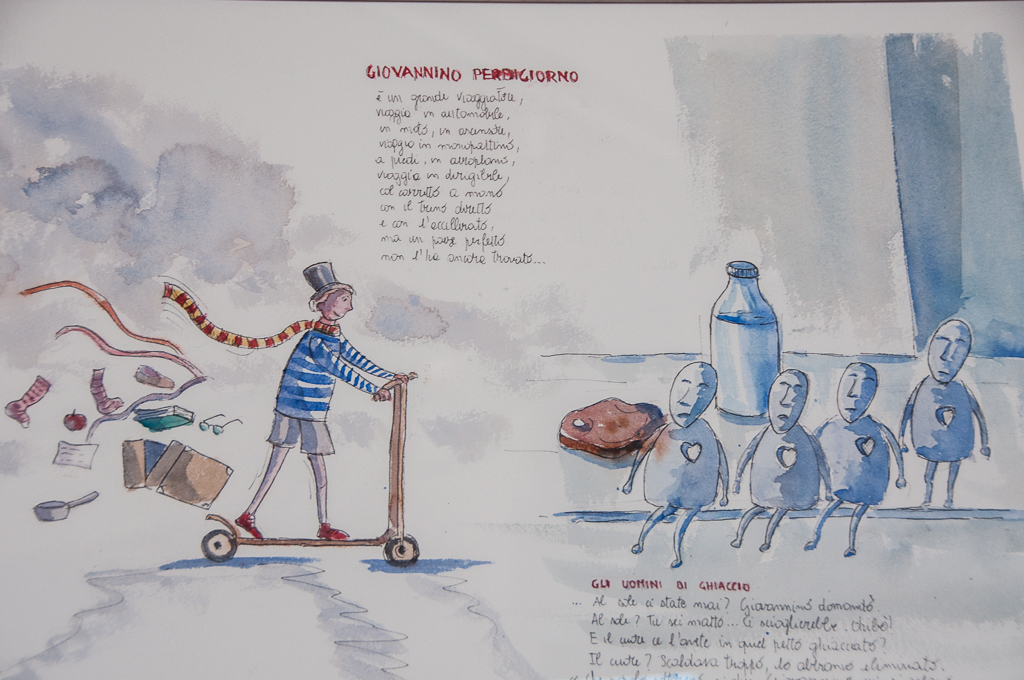 GIOVANNINO PERDIGIORNO
è un grande viaggiatore,
viaggia in automobile,
in moto, in ascensore,
viaggia in monopattino,
a piedi, in aeroplano,
viaggia in dirigibile,
col carretto a mano
con il treno diretto
e con l'accellerato,
ma un paese perfetto
non l'ha ancora trovato...
GLI UOMINI DI GHIACCIO
... Al sole ci state mai? Giovannino domandò.
Al sole? Tu sei matto... Ci scioglierebbe. Ohibò!
E il cuore ce l'avete in quel petto ghiacciato?
Il cuore? Scaldava troppo, lo abbiamo eliminato.